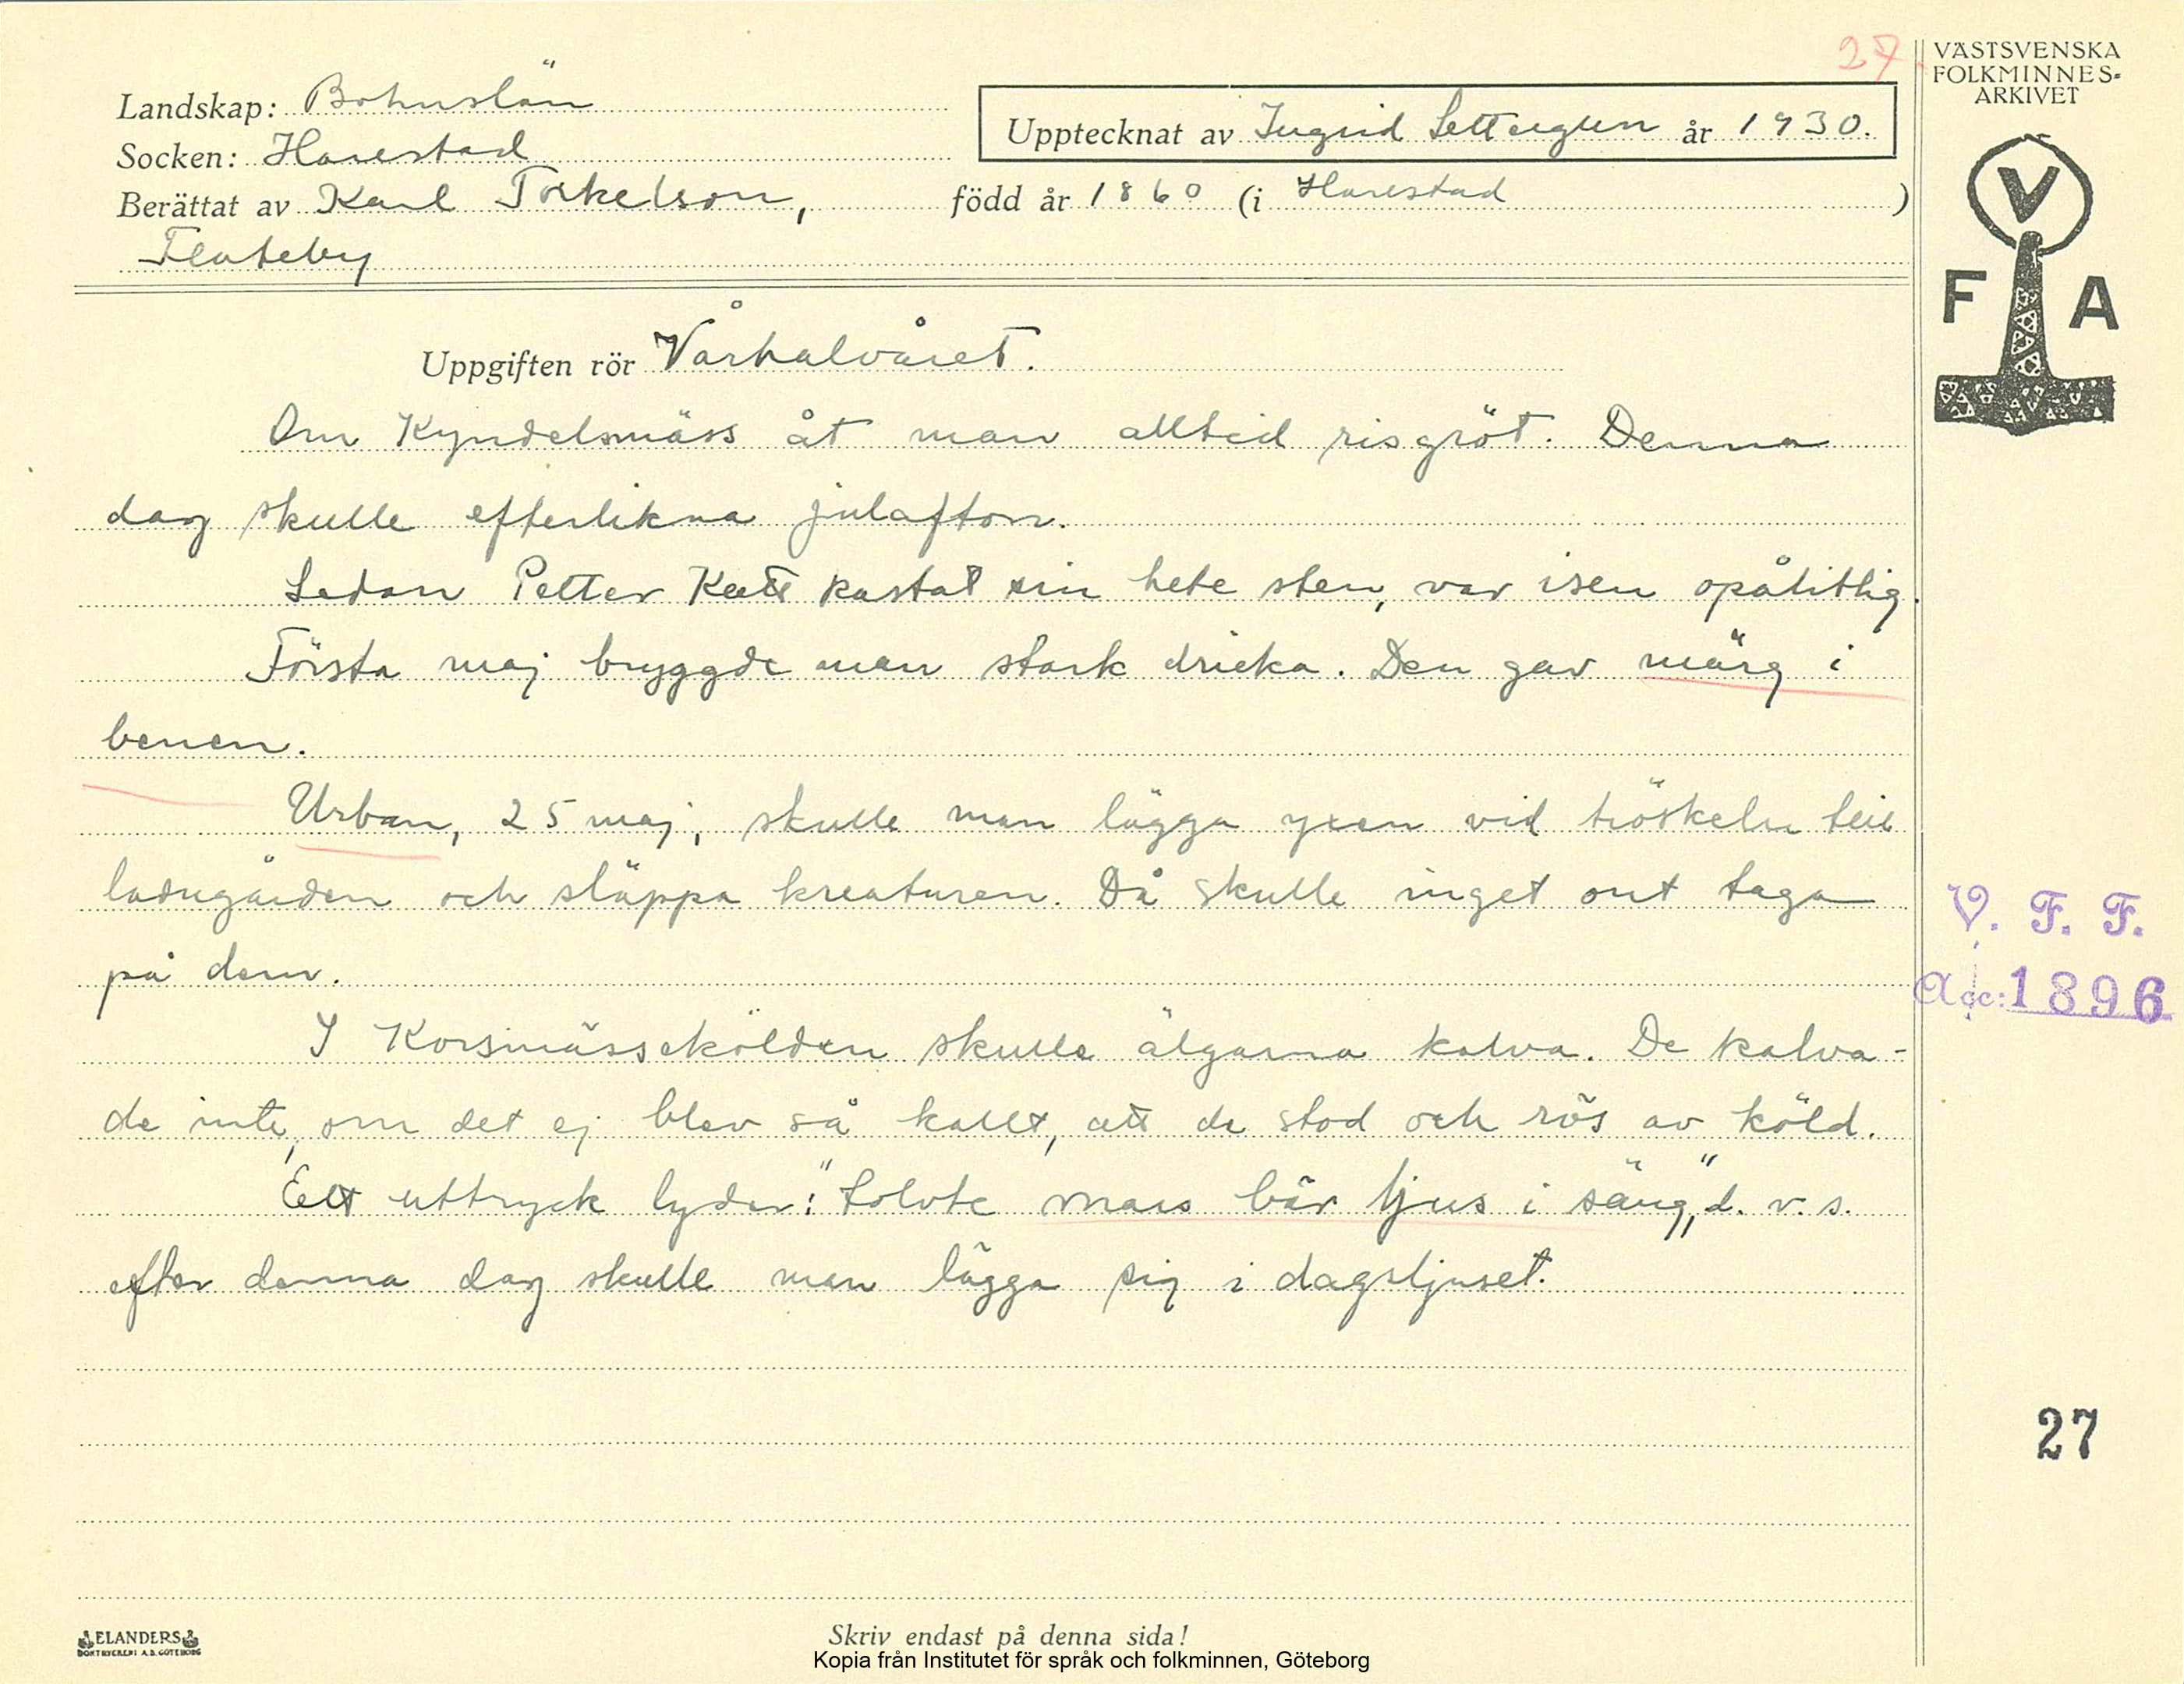 27.
Landskap: Bohuslän
Socken: Harestad
Berättat av Karl Torkelson,
Flateby
Upptecknat av Ingrid Settergren år 1930.
född år 1860 (i Harestad )
VÄSTSVENSKA
FOLKMINNES-
ARKIVET
V
F A
Uppgiften rör Vårhalvåret.
Om Kyndelsmäss åt man alltid risgröt. Denna
dag skulle efterlikna julafton.
Sedan Petter Katt kastat sin hete sten, var isen opålitlig.
Första maj bryggde man stark dricka. Den gav märg i
benen.
Urban, 25 maj, skulle man lägga yxen vid tröskeln till
ladugården och släppa kreaturen. Då skulle inget ont taga
på dem.
I Korsmässekölden skulle älgarna kalva. De kalva-
de inte, om det ej blev så kallt, att de stod och rös av köld.
Ett uttryck lyder: "tolvte mars bär ljus i säng", d. v. s.
efter denna dag skulle man lägga sig i dagsljuset.
V. F. F.
Acc: 1896
27
ELANDERS
BOKTRYCKERI A.B. GÖTEBORG
Skriv endast på denna sida!
Kopia från Institutet för språk och folkminnen, Göteborg